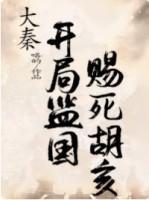 大秦
开局监国
赐死胡亥
作品